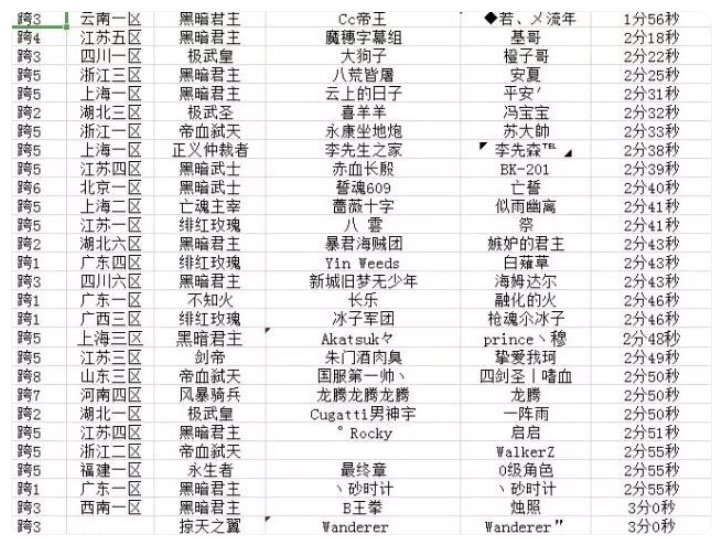 跨3 云南一区 黑暗君主 Cc帝王 ◆若、メ流年 1分56秒
跨4 江苏五区 黑暗君主 魔穗字幕组 基哥 2分18秒
跨3 四川一区 极武皇 大狗子 橙子哥 2分22秒
跨5 浙江三区 黑暗君主 八荒皆屠 安夏 2分25秒
跨5 上海一区 黑暗君主 云上的日子 平安′ 2分31秒
跨2 湖北三区 极武圣 喜羊羊 冯宝宝 2分32秒
跨5 浙江一区 帝血弑天 永康坐地炮 苏大帥 2分33秒
跨5 上海一区 正义仲裁者 李先生之家 ◤李先森℡◢ 2分38秒
跨5 江苏四区 黑暗武士 赤血长殿 BK-201 2分39秒
跨6 北京一区 黑暗武士 誓魂609 亡誓 2分40秒
跨5 上海二区 亡魂主宰 蔷薇十字 似雨幽离 2分41秒
跨5 江苏一区 绯红玫瑰 八 雲 祭 2分41秒
跨2 湖北六区 黑暗君主 暴君海贼团 嫉妒的君主 2分43秒
跨1 广东四区 绯红玫瑰 Yin Weeds 白薙草 2分43秒
跨3 四川六区 黑暗君主 新城旧梦无少年 海姆达尔 2分43秒
跨1 广东一区 不知火 长乐 融化的火 2分46秒
跨1 广西三区 绯红玫瑰 冰子军团 枪魂尒冰子 2分46秒
跨5 上海三区 黑暗君主 Akatsukㄅ prince丶穆 2分48秒
跨5 江苏三区 剑帝 朱门酒肉臭 挚爱我珂 2分49秒
跨8 山东三区 帝血弑天 国服第一帅丶 四剑圣丨嗜血 2分50秒
跨7 河南四区 风暴骑兵 龙腾龙腾龙腾 龙腾 2分50秒
跨2 湖北一区 极武皇 Cugatti男神宇 一阵雨 2分50秒
跨5 江苏四区 黑暗君主 °Rocky 启启 2分51秒
跨5 浙江二区 帝血弑天 WalkerZ 2分55秒
跨5 福建一区 永生者 最终章 0级角色 2分55秒
跨1 广东一区 黑暗君主 丶砂时计 丶砂时计 2分55秒
跨3 西南一区 黑暗君主 B王拳 烛照 3分0秒
跨3 掠天之翼 Wanderer Wanderer" 3分0秒